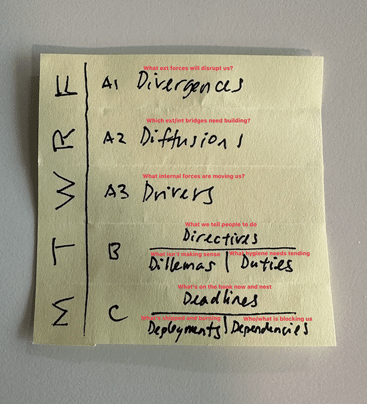 M T W R F
What ext forces will disrupt us?
A1 Divergences
Which ext/int bridges need building?
A2 Diffusions
What internal forces are moving us?
A3 Drivers
What we tell people to do
Directives
B
What isn't making sense What hygiene needs tending
Dilemmas Duties
What's on the hook now and next
Deadlines
C
and burning Who/what is blocking us
Deployments Dependencies